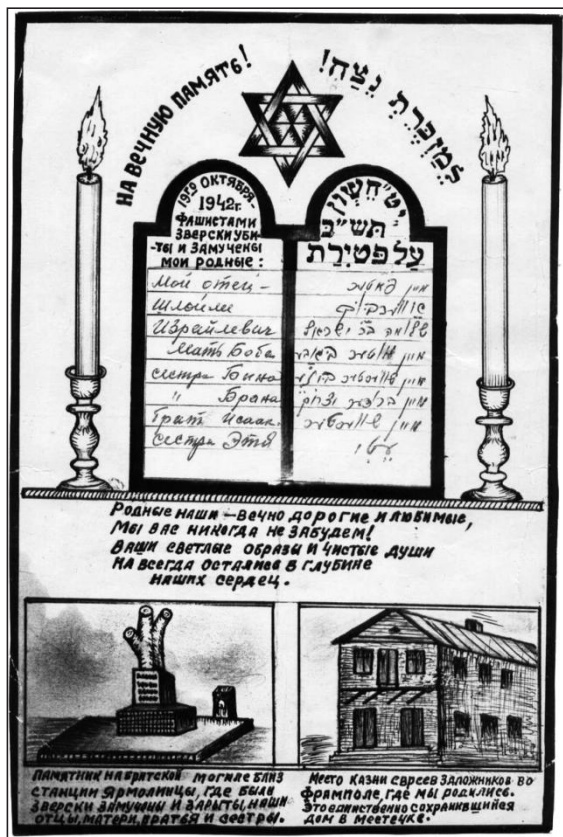 НА ВЕЧНУЮ ПАМЯТЬ!
לְמַזְכֶּרֶת נֶצַח!
19го ОКТЯБРЯ-
1942г.
ФАШИСТАМИ
ЗВЕРСКИ УБИ-
ТЫ И ЗАМУЧЕНЫ
МОИ РОДНЫЕ :
Мой отец -
Шлойме
Израйлевич
Мать Боба
сестра Бина
" Брана
Брат Исаак.
сестра Этя
י"ט חשון
תש"ב
עַל פְּטִירַת
מיין פאטער
שלמה ב"ר ישראל
מיין
מיין שוועסטער
מיין ברודער יצחק
מיין שוועסטער
עטי
РОДНЫЕ НАШИ — ВЕЧНО ДОРОГИЕ И ЛЮБИМЫЕ,
МЫ ВАС НИКОГДА НЕ ЗАБУДЕМ!
ВАШИ СВЕТЛЫЕ ОБРАЗЫ И ЧИСТЫЕ ДУШИ
НА ВСЕГДА ОСТАЛИСЬ В ГЛУБИНЕ
НАШИХ СЕРДЕЦ.
ПАМЯТНИК НА БРАТСКОЙ МОГИЛЕ БЛИЗ
СТАНЦИИ ЯРМОЛИНЦЫ, ГДЕ БЫЛИ
ЗВЕРСКИ ЗАМУЧЕНЫ И ЗАРЫТЫ, НАШИ
ОТЦЫ, МАТЕРИ, БРАТЬЯ И СЕСТРЫ.
МЕСТО КАЗНИ ЕВРЕЕВ ЗАЛОЖНИКОВ ВО
ФРЯМПОЛЕ, ГДЕ МЫ РОДИЛИСЬ.
ЭТО ЕДИНСТВЕННО СОХРАНИВШИЙСЯ
ДОМ В МЕСТЕЧКЕ.